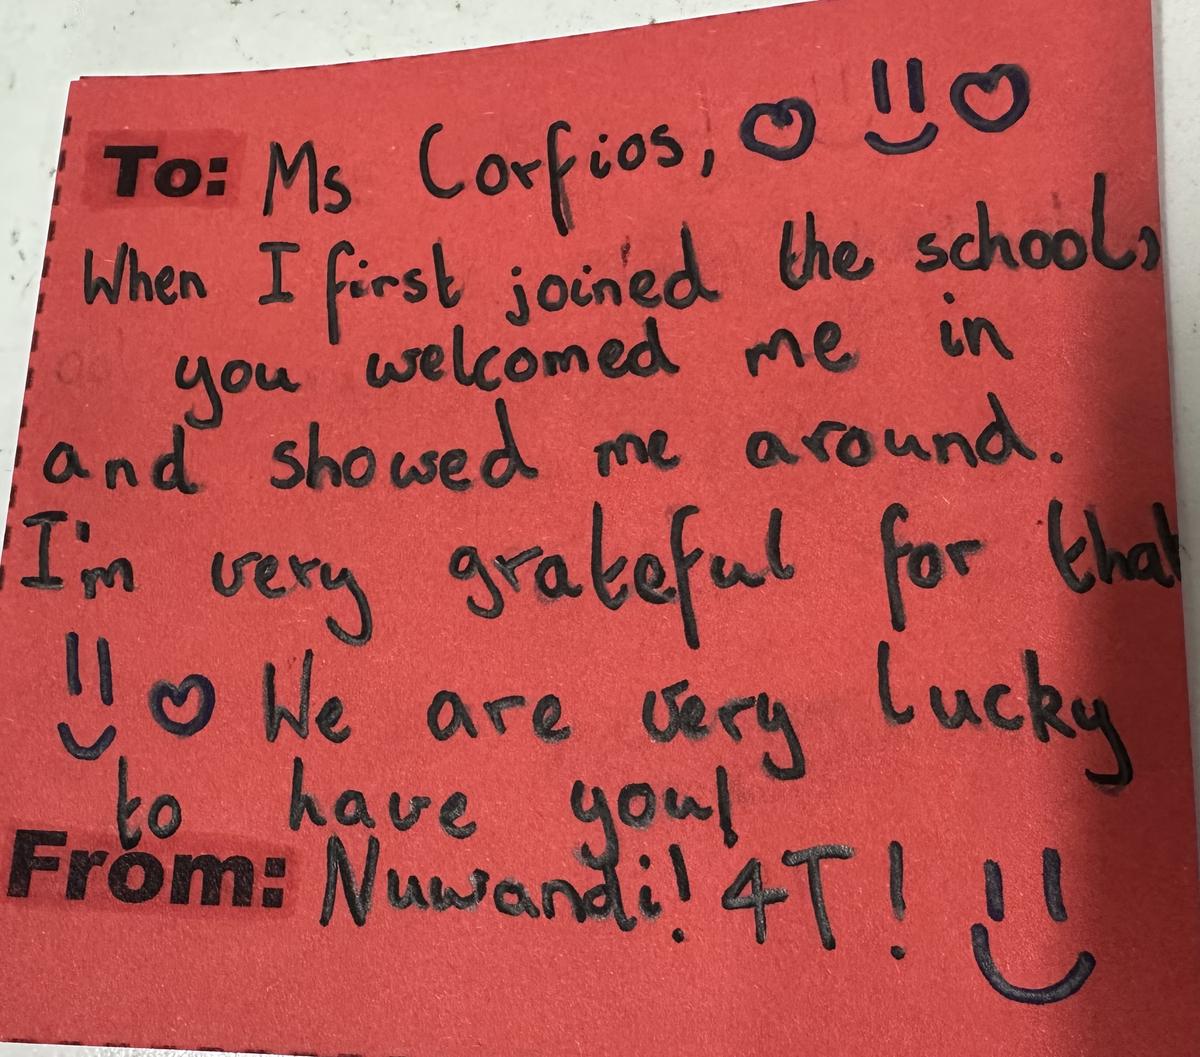 To: Ms Corfios,
When I first joined the school,
you welcomed me in
and showed me around.
I'm very grateful for that
We are very lucky
to have you!
From: Nuwandi! 4T!